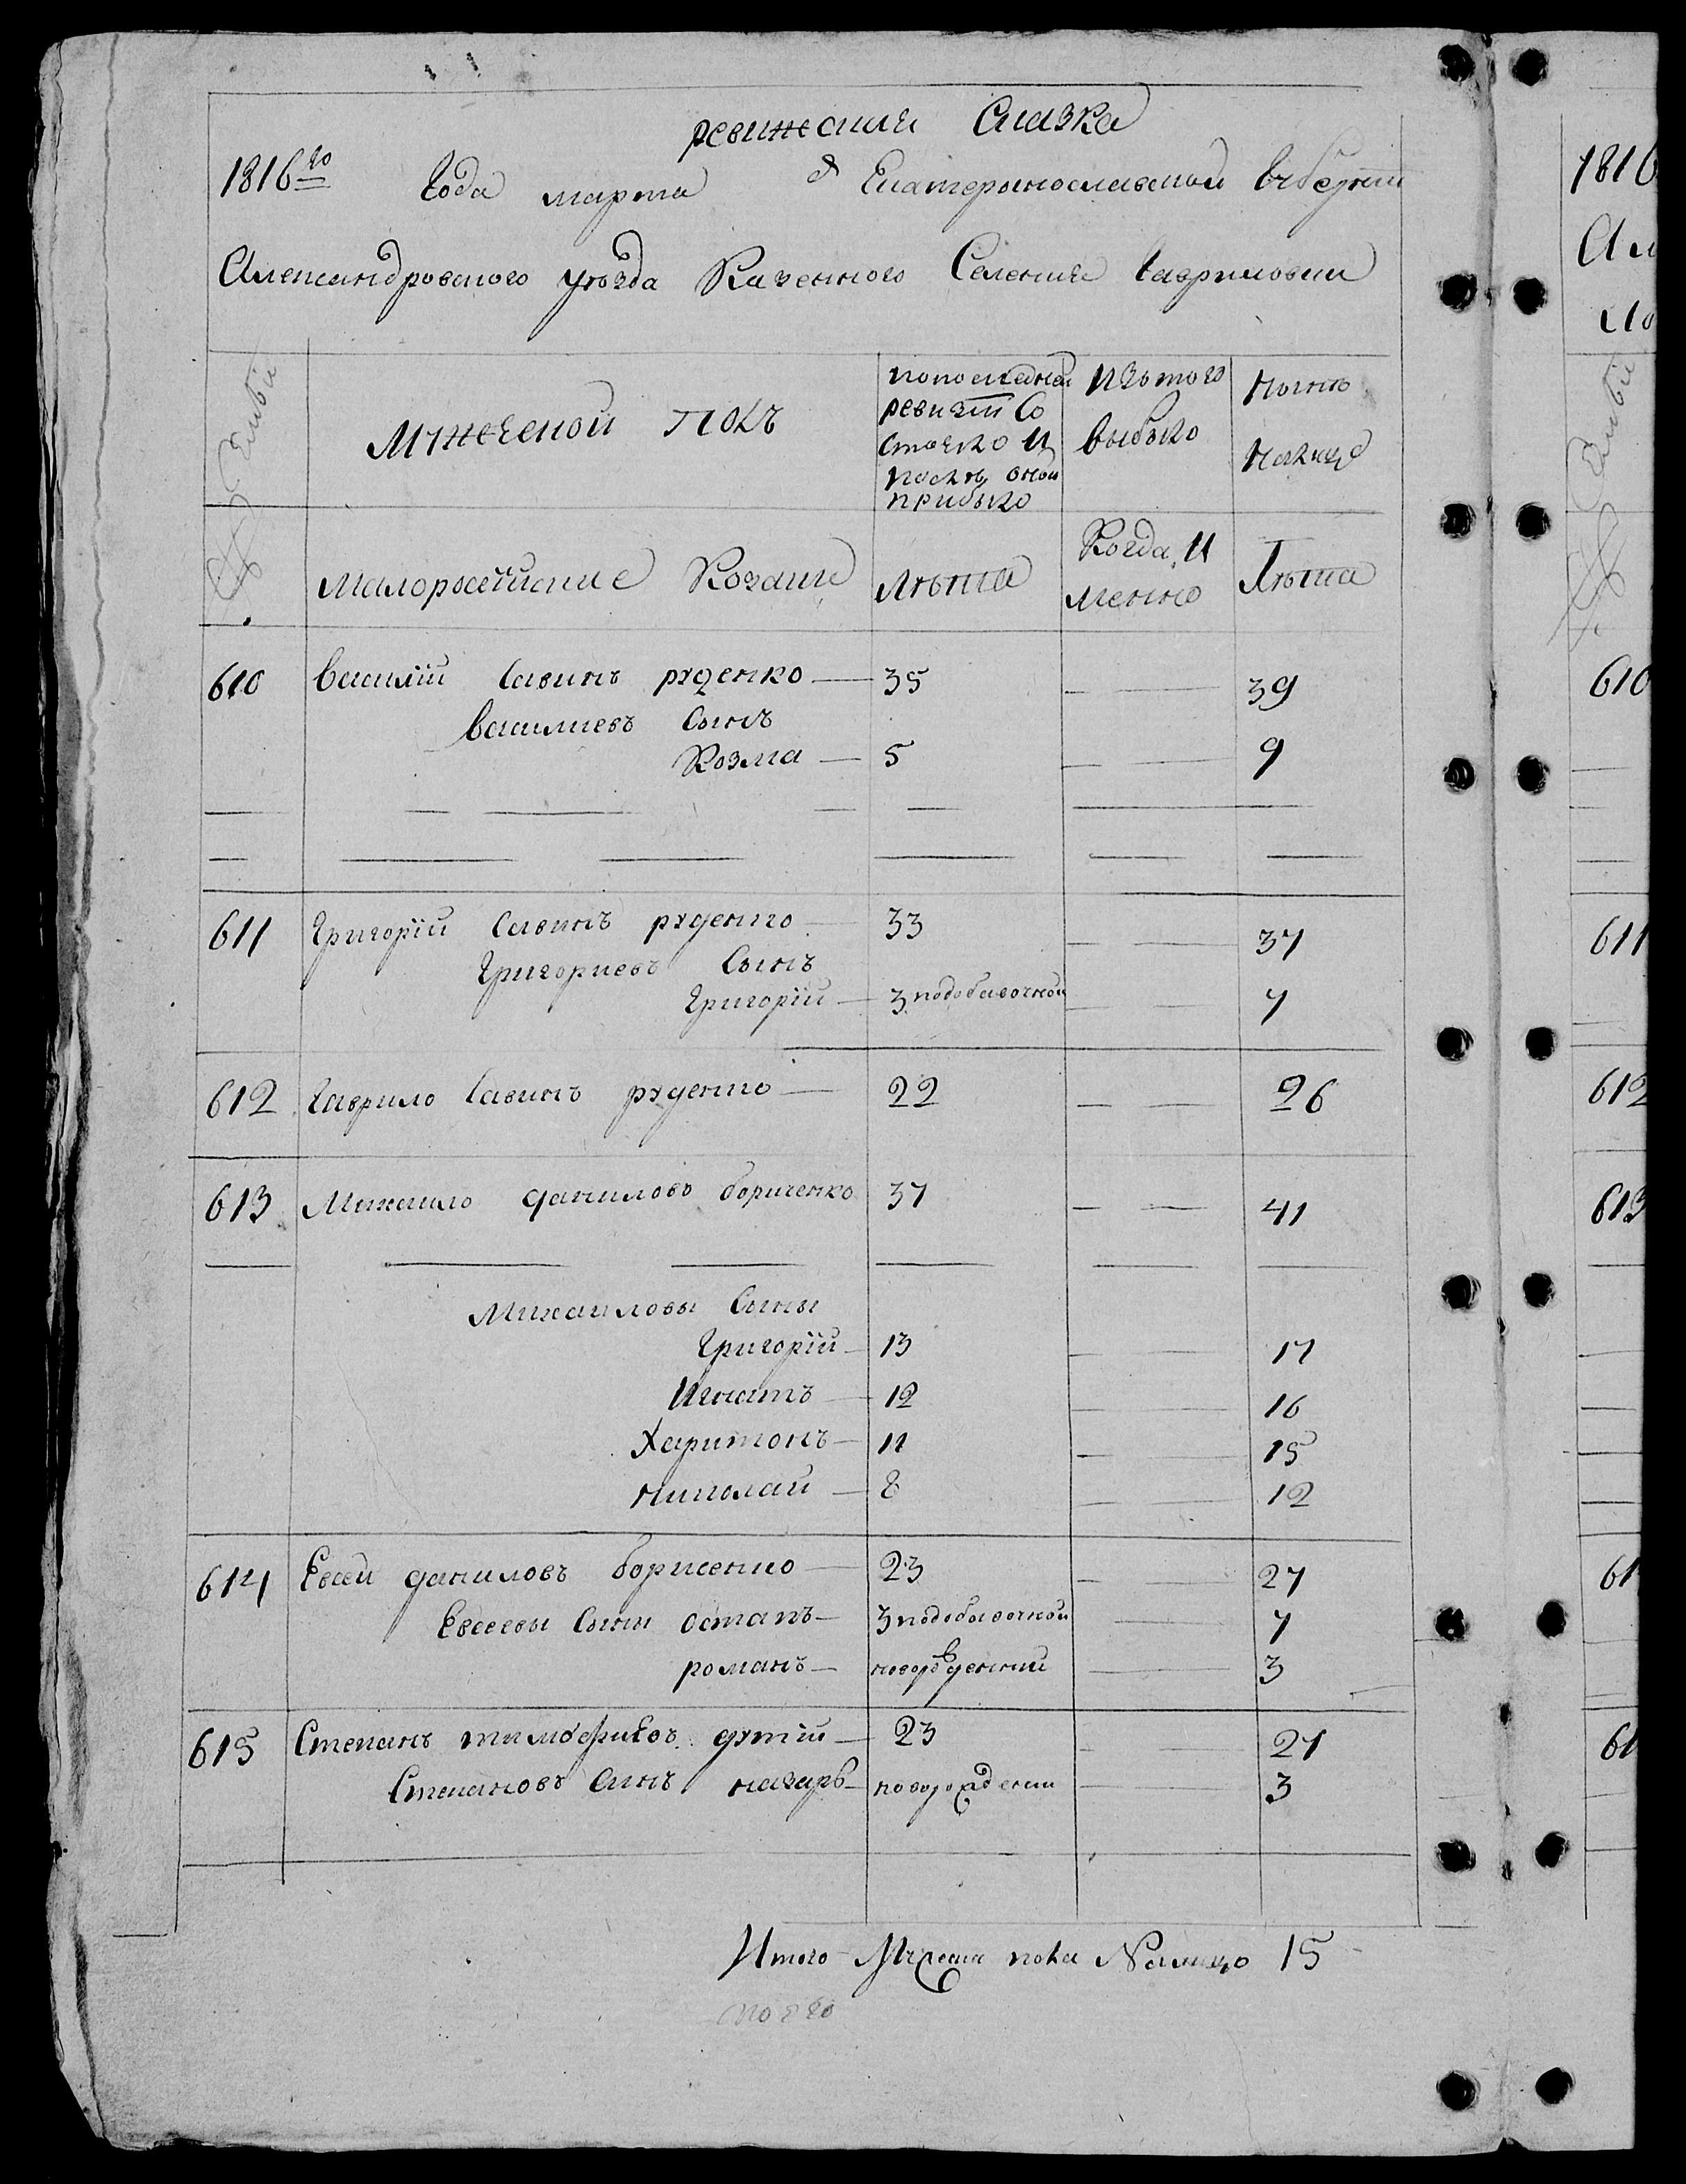 ревижская Сказка
1816го Года марта д Екатеринославской Губернии
Александровского уезда Казенного Селения Гавриловки
Мужеской полъ
попоследней ревизіи Состояло и после оной прибыло
Изътого выбыло
Ныне налицо
Семьи
Малороссійские Козаки
Лѣта
Когда И менно
Лѣта
610 Василій Савинъ руденко — 35 — — 39
Василиевъ Сынъ
Козма — 5 — — 9
611 Григорій Савинъ руденко — 33 — — 37
Григориевъ Сынъ
Григорій — 3 подобавочной — — 7
612 Гаврило Савинъ руденко — 22 — — 26
613 Михаило даниловъ бориченко 37 — — 41
Михаиловы Сыны
Григорій — 13 — — 17
Игнатъ — 12 — — 16
Харитонъ — 11 — — 15
Николай — 8 — — 12
614 Евсей даниловъ борисенко — 23 — — 27
Евсеевы Сыны остапъ — 3 подобавочной — 7
романъ — новорожденний — 3
615 Степанъ тимофиевъ дутій — 23 — — 27
Степановъ Синъ назаръ — новорожденни — 3
Итого Мужеска пола Налицо 15
1816
610
611
612
613